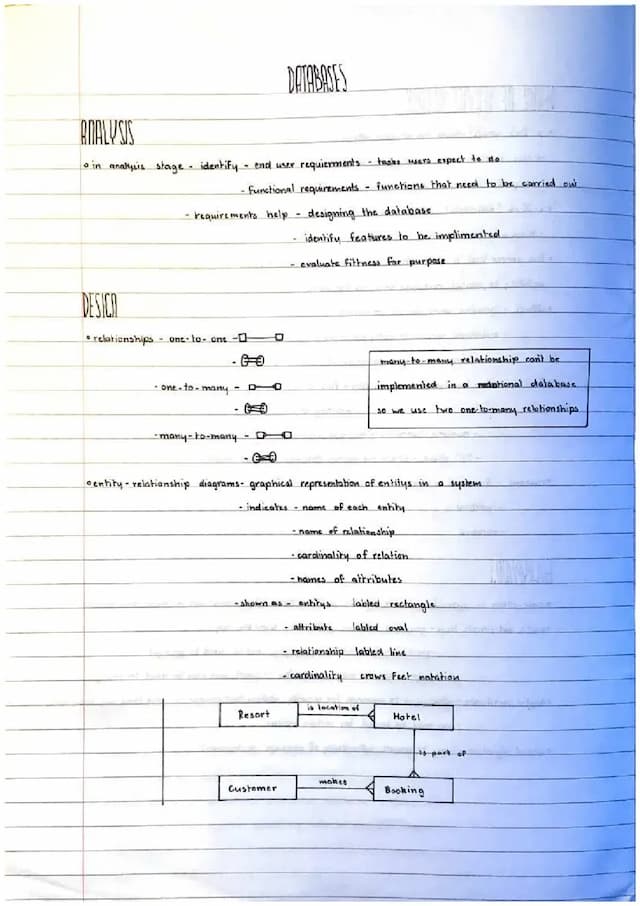 DATABASES
ANALYSIS
in analysis stage - identify - end user requierments - tasks users expect to do
- functional requirements - functions that need to be carried out
- requirements help - designing the database
- identify features to be implimented
- evaluate fittness for purpose
DESIGN
relationships - one-to-one -
-
- one-to-many -
-
- many-to-many -
-
many-to-many relationship can't be
implemented in a relational database
so we use two one-to-many relationships
entity-relationship diagrams - graphical representation of entitys in a system
- indicates - name of each entity
- name of relationship
- cardinality of relation
- names of attributes
- shown as - entitys labled rectangle
- attribute labled oval
- relationship labled line
- cardinality crows feet notation
Resort is location of Hotel
is part of
Customer makes Booking